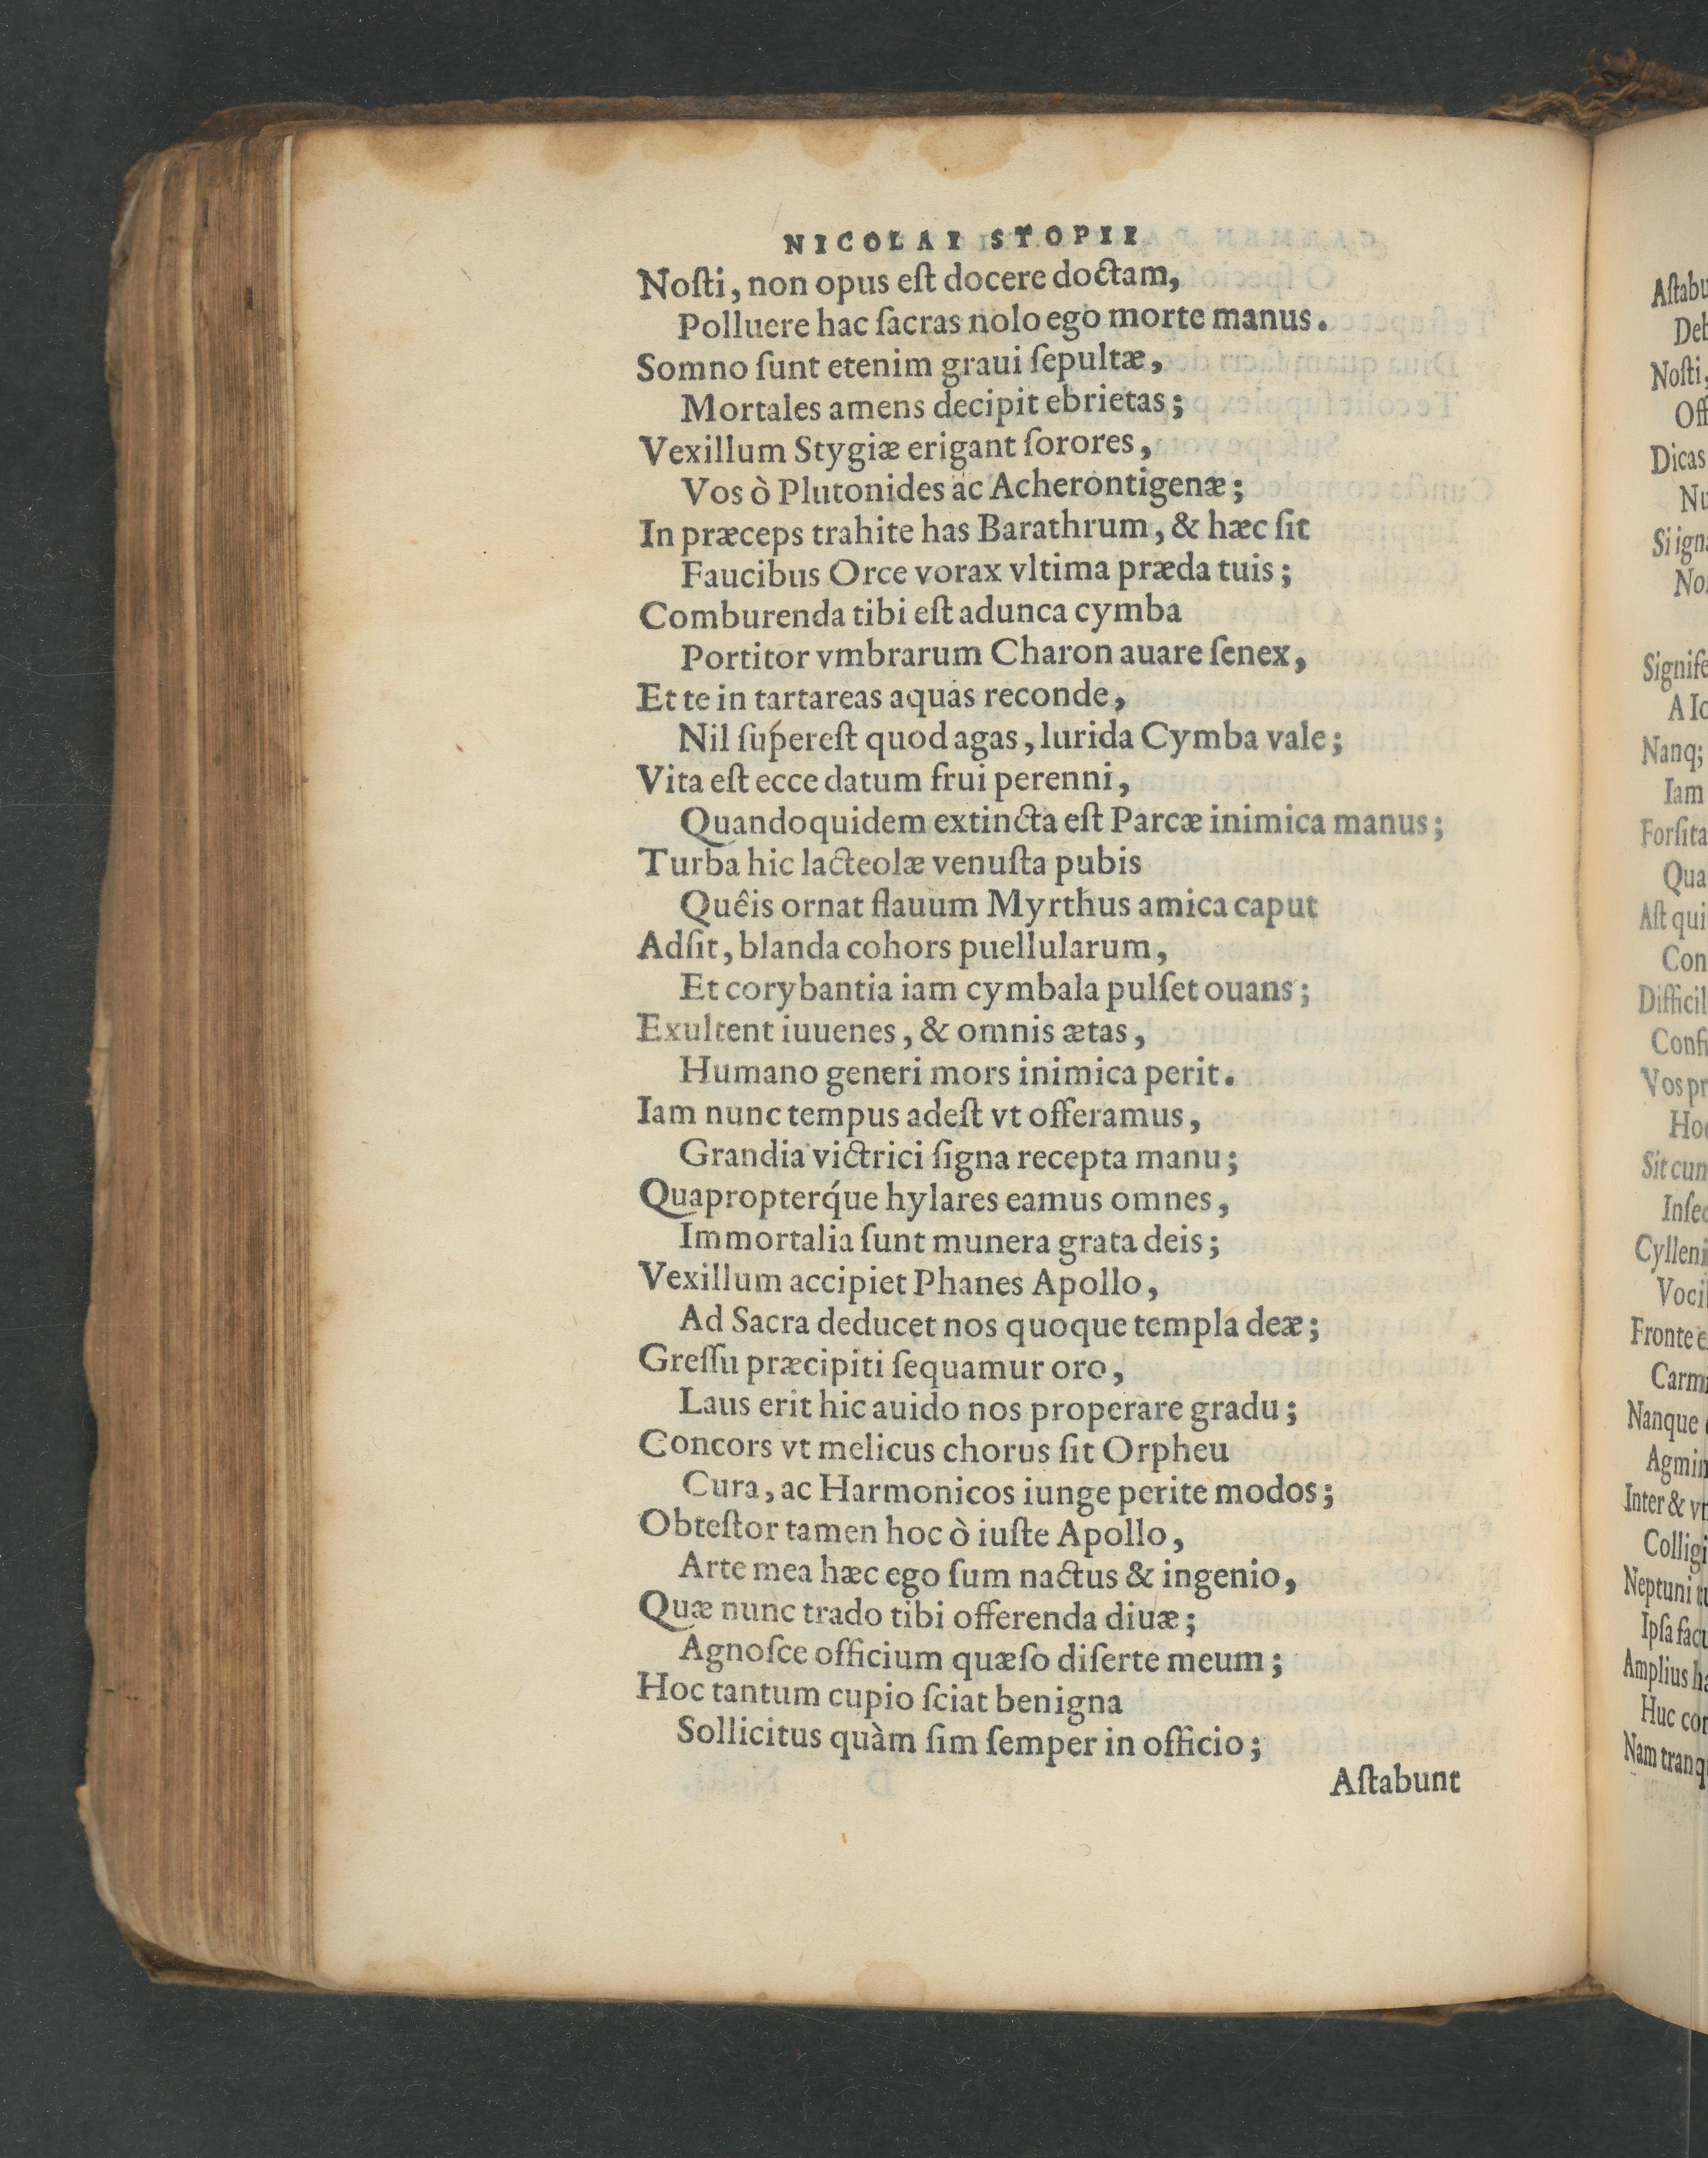 NICOLAI STOPII
Noſti, non opus eſt docere doctam,
Polluere hac ſacras nolo ego morte manus.
Somno ſunt etenim graui ſepultæ,
Mortales amens decipit ebrietas;
Vexillum Stygiæ erigant ſorores,
Vos ò Plutonides ac Acherontigenæ;
In præceps trahite has Barathrum, & hæc ſit
Faucibus Orce vorax vltima præda tuis;
Comburenda tibi eſt adunca cymba
Portitor vmbrarum Charon auare ſenex,
Et te in tartareas aquas reconde,
Nil ſuṕereſt quod agas, lurida Cymba vale;
Vita eſt ecce datum frui perenni,
Quandoquidem extincta eſt Parcæ inimica manus;
Turba hic lacteolæ venuſta pubis
Quêis ornat flauum Myrthus amica caput
Adſit, blanda cohors puellularum,
Et corybantia iam cymbala pulſet ouans;
Exultent iuuenes, & omnis ætas,
Humano generi mors inimica perit.
Iam nunc tempus adeſt vt offeramus,
Grandia victrici ſigna recepta manu;
Quapropterq́ue hylares eamus omnes,
Immortalia ſunt munera grata deis;
Vexillum accipiet Phanes Apollo,
Ad Sacra deducet nos quoque templa deæ;
Greſſu præcipiti ſequamur oro,
Laus erit hic auido nos properare gradu;
Concors vt melicus chorus ſit Orpheu
Cura, ac Harmonicos iunge perite modos;
Obteſtor tamen hoc ò iuſte Apollo,
Arte mea hæc ego ſum nactus & ingenio,
Quæ nunc trado tibi offerenda diuæ;
Agnoſce officium quæſo diſerte meum;
Hoc tantum cupio ſciat benigna
Sollicitus quàm ſim ſemper in officio;
Aſtabunt
Noſti,
Dicas
Nanq;
Iam
Aſt qui
Sit cun
Fronte
Nanque
Inter &
Neptuni
Ipſa
Amplius
Huc
Nam